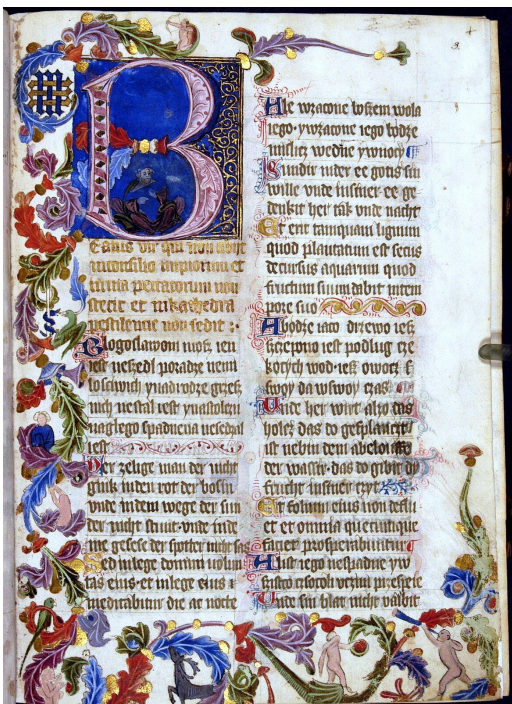 B
eatus vir qui non abiit
in consilio impiorum et
in via peccatorum non
stetit et in kathedra
pestilencie non sedit :
Blogoslawoni møsz ien
iest ne szedl po radze nemi
losciwich y na drodze grzesz
nich ne stal iest y na stolczu
naglego spadnena ne sedzal
iest
Der zelige man der nicht
gink in den rot der bosin
vnde in dem wege der sun
der nicht stunt · vnde in de
me gesese der spotter nicht sas
Sed in lege domini volun
tas eius · et in lege eius
meditabitur die ac nocte
Ale w zacone bozem wola
iego · y w zacone iego bødze
misslicz we dne y w nocy
Sundir in der ee gotis sin
wille vnde in siner ee ge
denkit her tak vnde nacht
Et erit tamquam lignum
quod plantatum est secus
decursus aquarum quod
fructum suum dabit in tem
pore suo
A bødze iaco drzewo iesz
szczepono iest podlug cze
kocych wod · iesz owocz
swoy da w swoy czas
Unde her wirt alzo das
holcz das do gepflanczit
ist nebin dem abelouffe
der wassir · das do gibit di
frucht in siner czyt
Et folium eius non deflu
et et omnia quecumque
faciet prosperabuntur
A list iego ne spadne y w
szistko czsokoli uczini prospeie
Unde sin blat nicht valbit